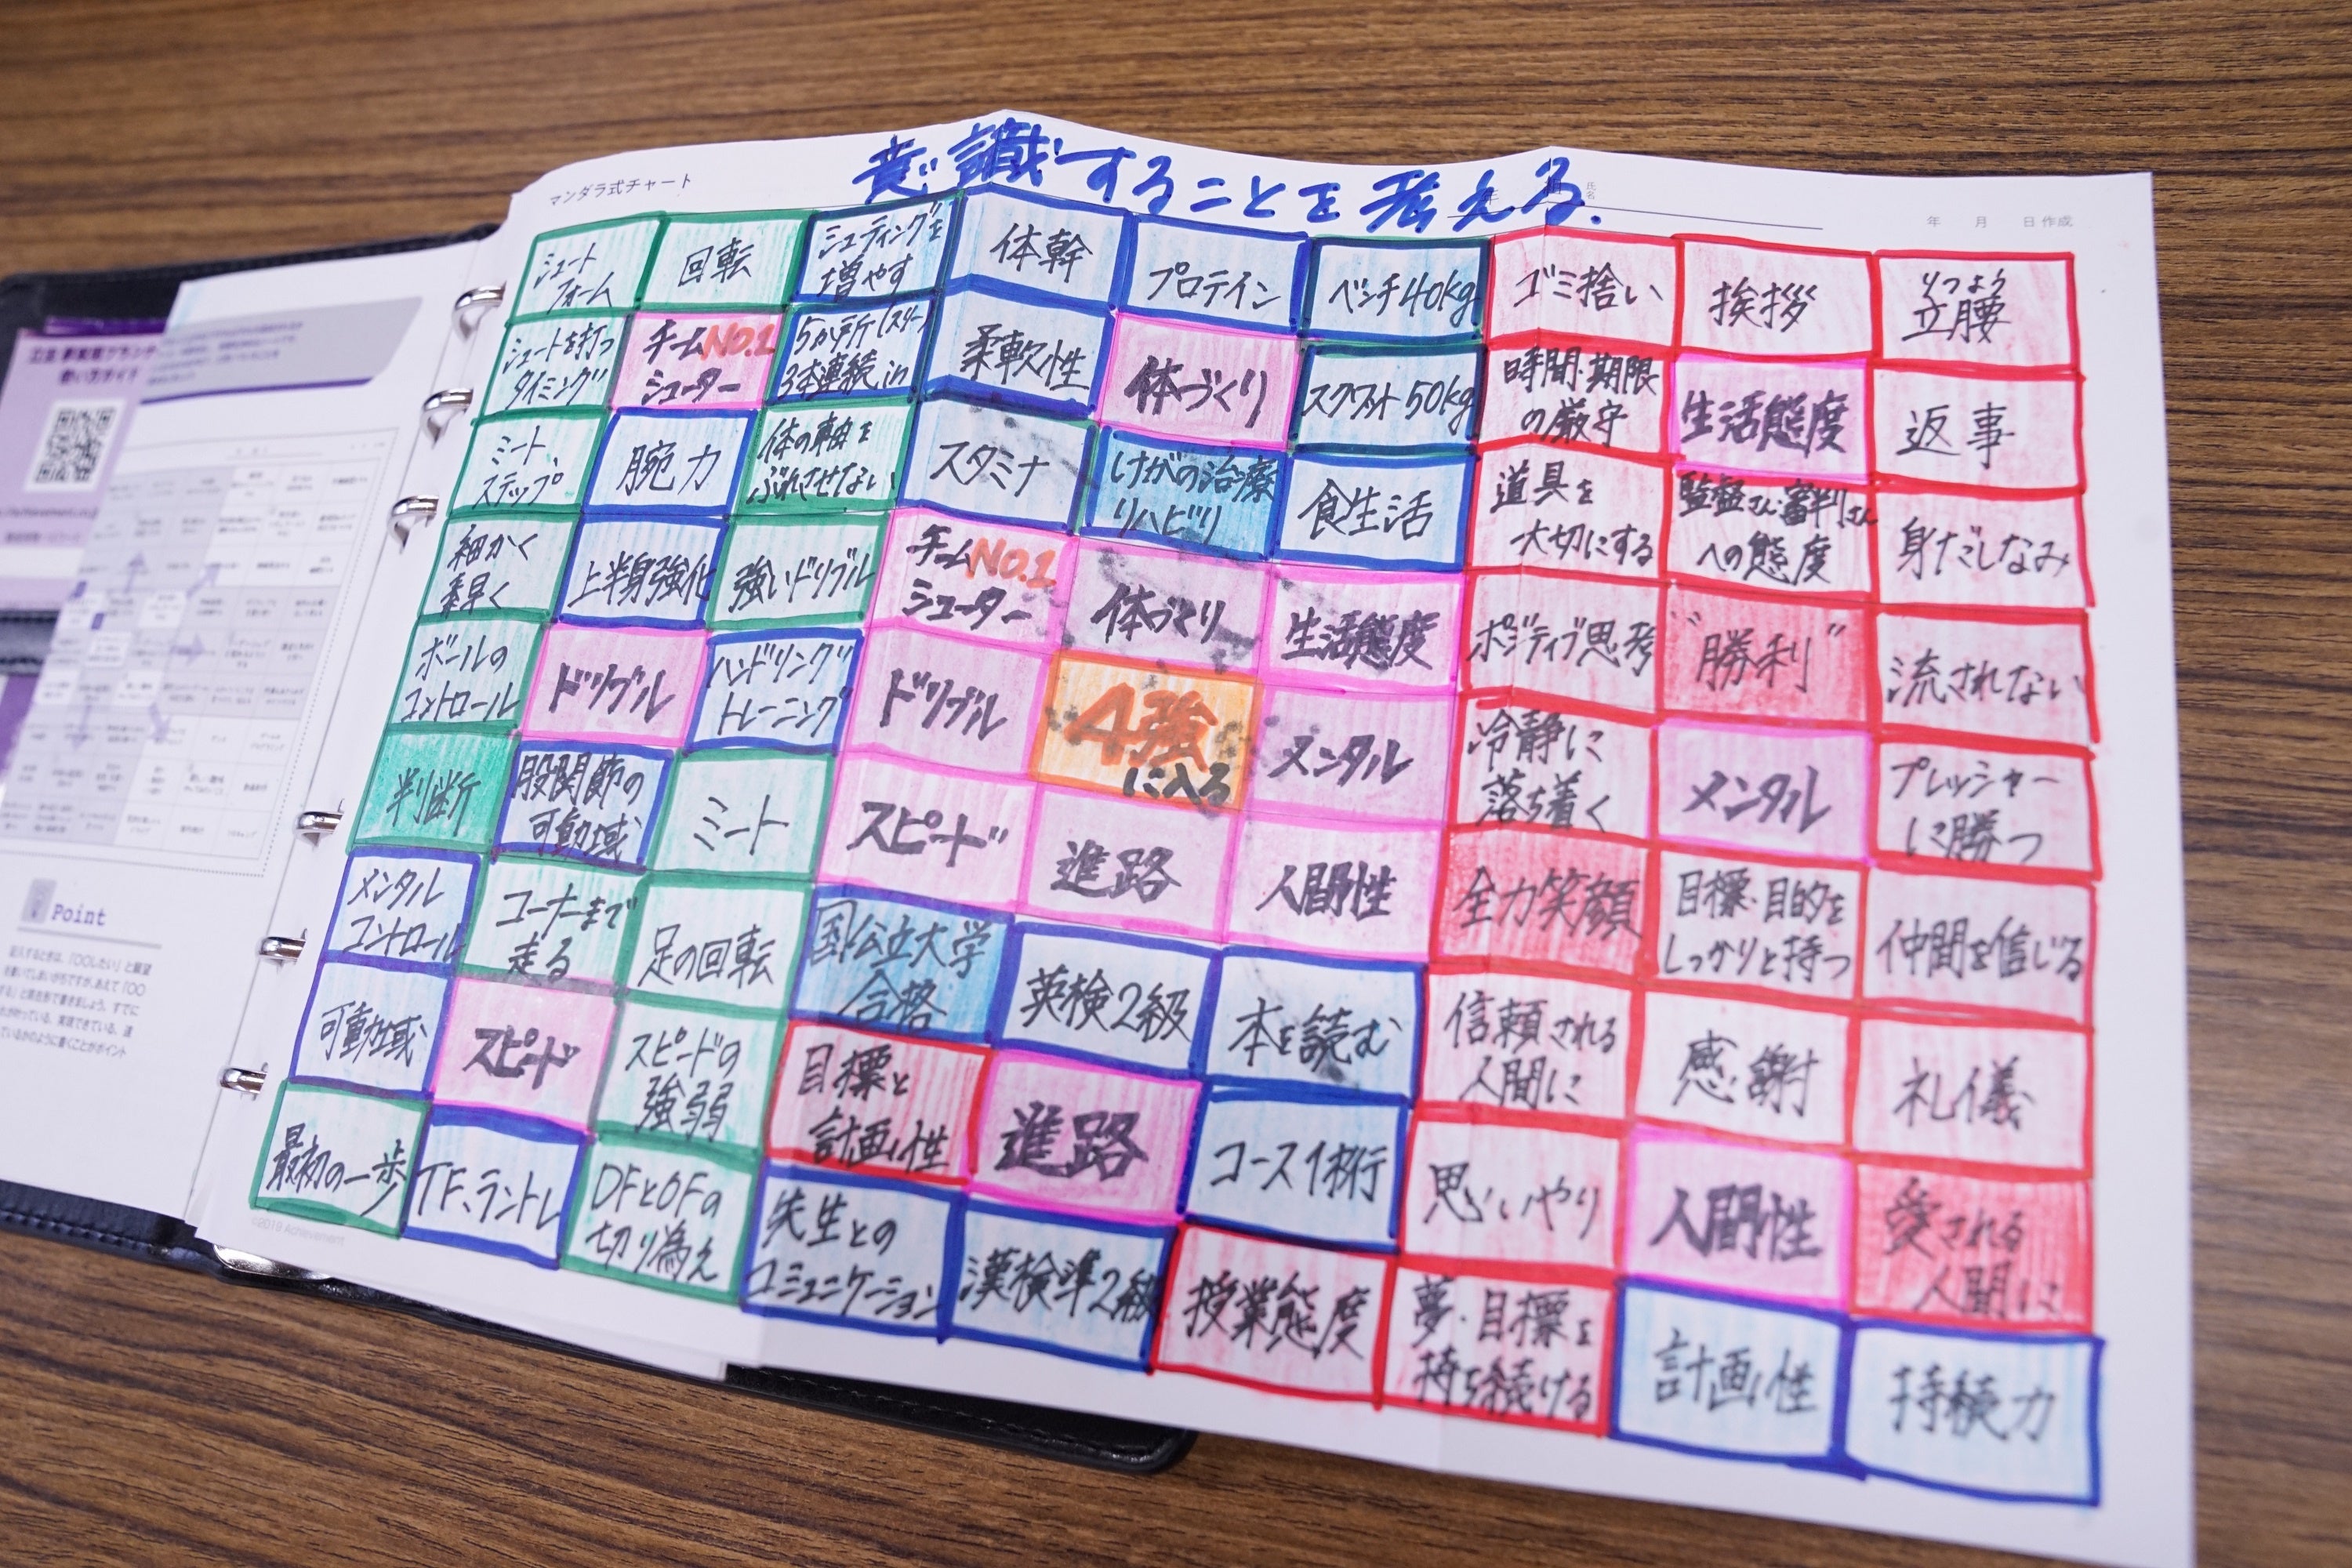 マンダラ式チャート
意識することを考える.
氏名
年 月 日作成
シュート
フォーム
回転
シューティングを
増やす
体幹
プロテイン
ベンチ40kg
ゴミ捨い
挨拶
りつよう
立腰
シュートを打つ
タイミング
チームNO.1
シューター
5か所(スリー)
3本連続in
柔軟性
体づくり
スクワット50kg
時間・期限
の厳守
生活態度
返事
ミート
ステップ
腕力
体の軸を
ぶれさせない
スタミナ
けがの治療
リハビリ
食生活
道具を
大切にする
監督さん・審判さん
への態度
身だしなみ
細かく
素早く
上半身強化
強いドリブル
チームNO.1
シューター
体づくり
生活態度
ポジティブ思考
"勝利"
流されない
ボールの
コントロール
ドリブル
ハンドリング
トレーニング
ドリブル
4強
に入る
メンタル
冷静に
落ち着く
メンタル
プレッシャー
に勝つ
判断
股関節の
可動域
ミート
スピード
進路
人間性
全力笑顔
目標・目的を
しっかりと持つ
仲間を信じる
メンタル
コントロール
コーナーまで
走る
足の回転
国公立大学
合格
英検2級
本を読む
信頼される
人間に
感謝
礼儀
可動域
スピード
スピードの
強弱
目標と
計画性
進路
コース1桁
思いやり
人間性
愛される
人間に
最初の一歩
TF、ラントレ
DFとOFの
切り為え
先生との
コミュニケーション
漢検準2級
授業態度
夢・目標を
持ち続ける
計画性
持続力
©2019 Achievement
Point